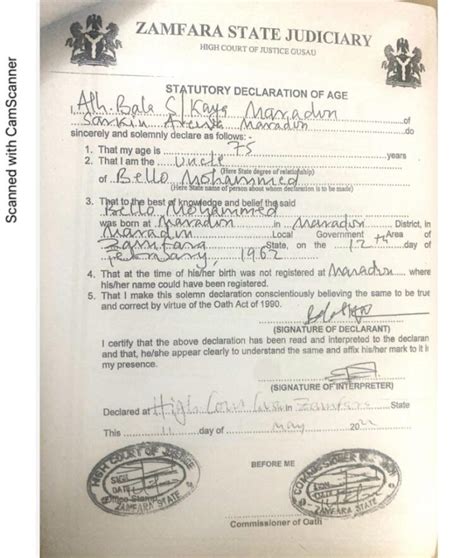 Scanned with CamScanner
ZAMFARA STATE JUDICIARY
HIGH COURT OF JUSTICE GUSAU
STATUTORY DECLARATION OF AGE
Alh. Bala S/Kaya Maradun of
Sarkin Maradun do
sincerely and solemnly declare as follows: -
1. That my age is 75 years
2. That I am the Uncle
(Here State degree of relationship)
of Bello Mohammed
(Here State name of person about whom declaration is to be made)
3. That to the best of knowledge and belief the said
Bello Mohammed
was born at Maradun in Maradun District, in
Maradun Local Government Area of
Zamfara State, on the 12th day of
February, 1962
4. That at the time of his/her birth was not registered at Maradun where
his/her name could have been registered.
5. That I make this solemn declaration conscientiously believing the same to be true
and correct by virtue of the Oath Act of 1990.
(SIGNATURE OF DECLARANT)
I certify that the above declaration has been read and interpreted to the declaran
and that, he/she appear clearly to understand the same and affix his/her mark to it i
my presence.
(SIGNATURE OF INTERPRETER)
Declared at High Court Gusau in Zamfara State
This 11 day of May 20
HIGH COURT OF JUSTICE
SIGN
DATE
Office Stamp
ZAMFARA STATE
BEFORE ME
COMMISSIONER
SIGN
DATE
ZAMFARA STATE
Commissioner of Oath